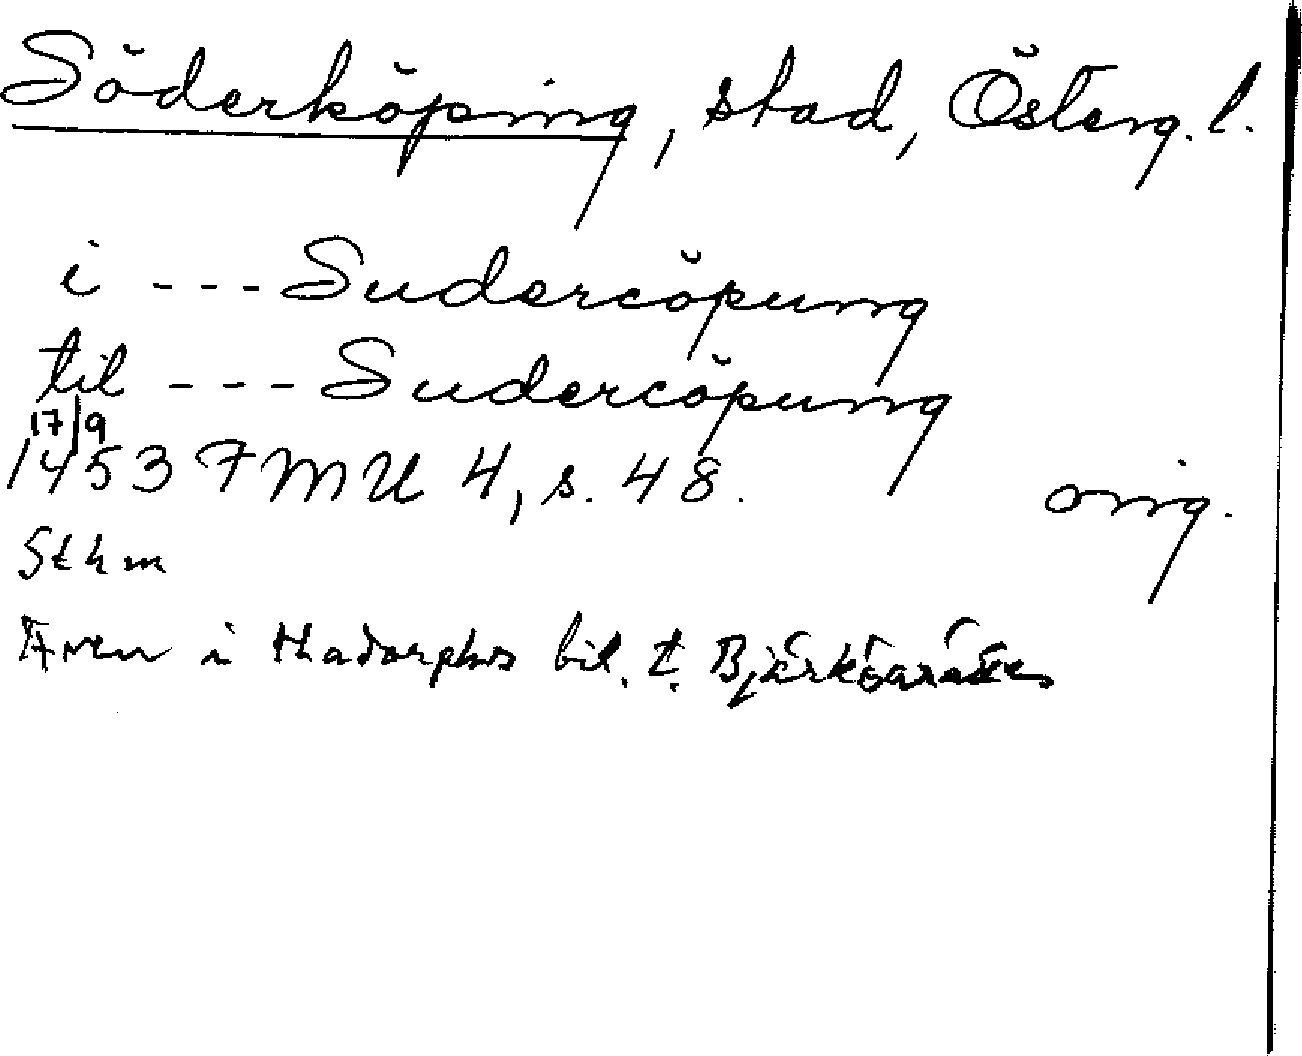 Söderköping, stad, Österg. l.
i --- Sudercöpung
til --- Sudercöpung
17/9
1453 FMU 4, s. 48. orig.
Sthm
Även i Hadorphs bil. t. Björköarätten